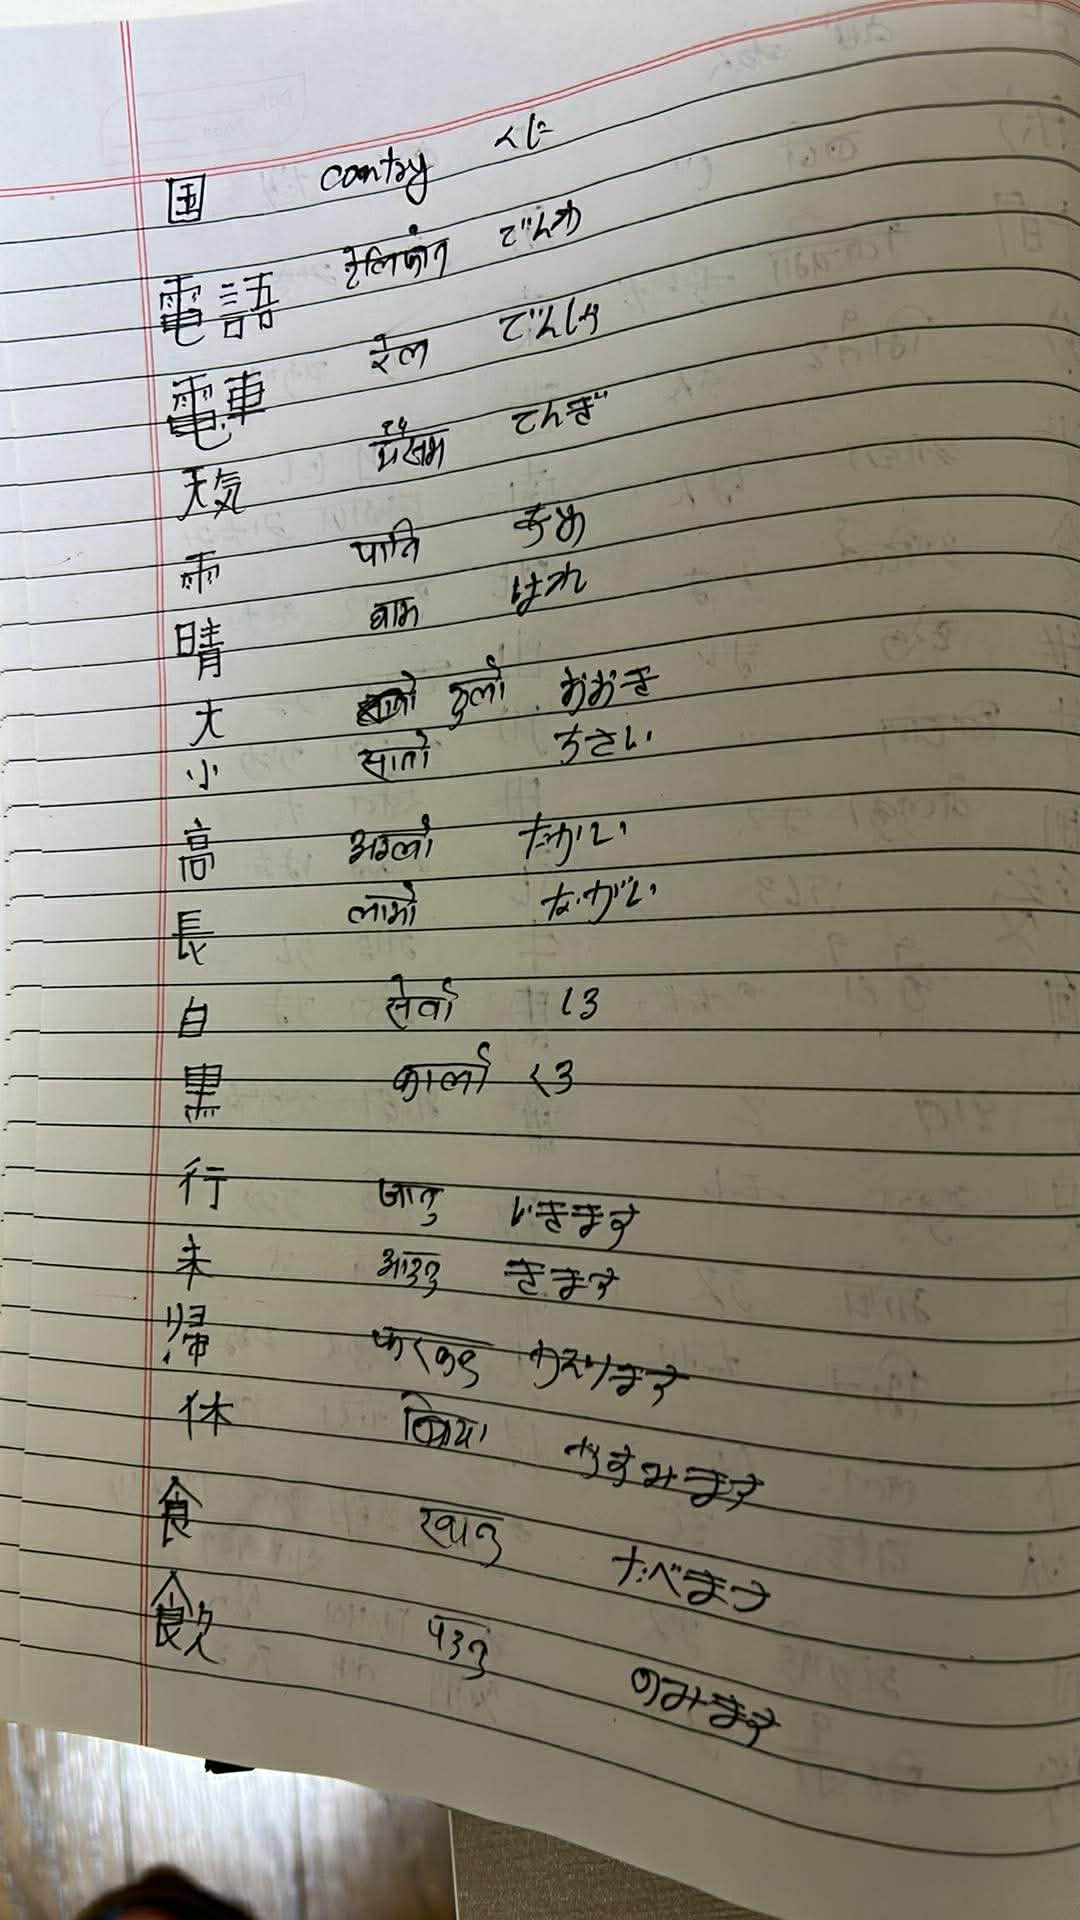 国 contry くに
電語 टेलिफोन でんわ
電車 रेल でんしゃ
天気 मौसम てんぎ
雨 पानि あめ
晴 घाम はれ
大 ठुलो おおき
小 सानो ちさい
高 अग्लो たかい
長 लामो ながい
白 सेतो しろ
黒 कालो くろ
行 जानु いきます
来 आउनु きます
帰 फर्कनु かえります
休 बिदा やすみます
食 खानु たべます
飲 पिउनु のみます